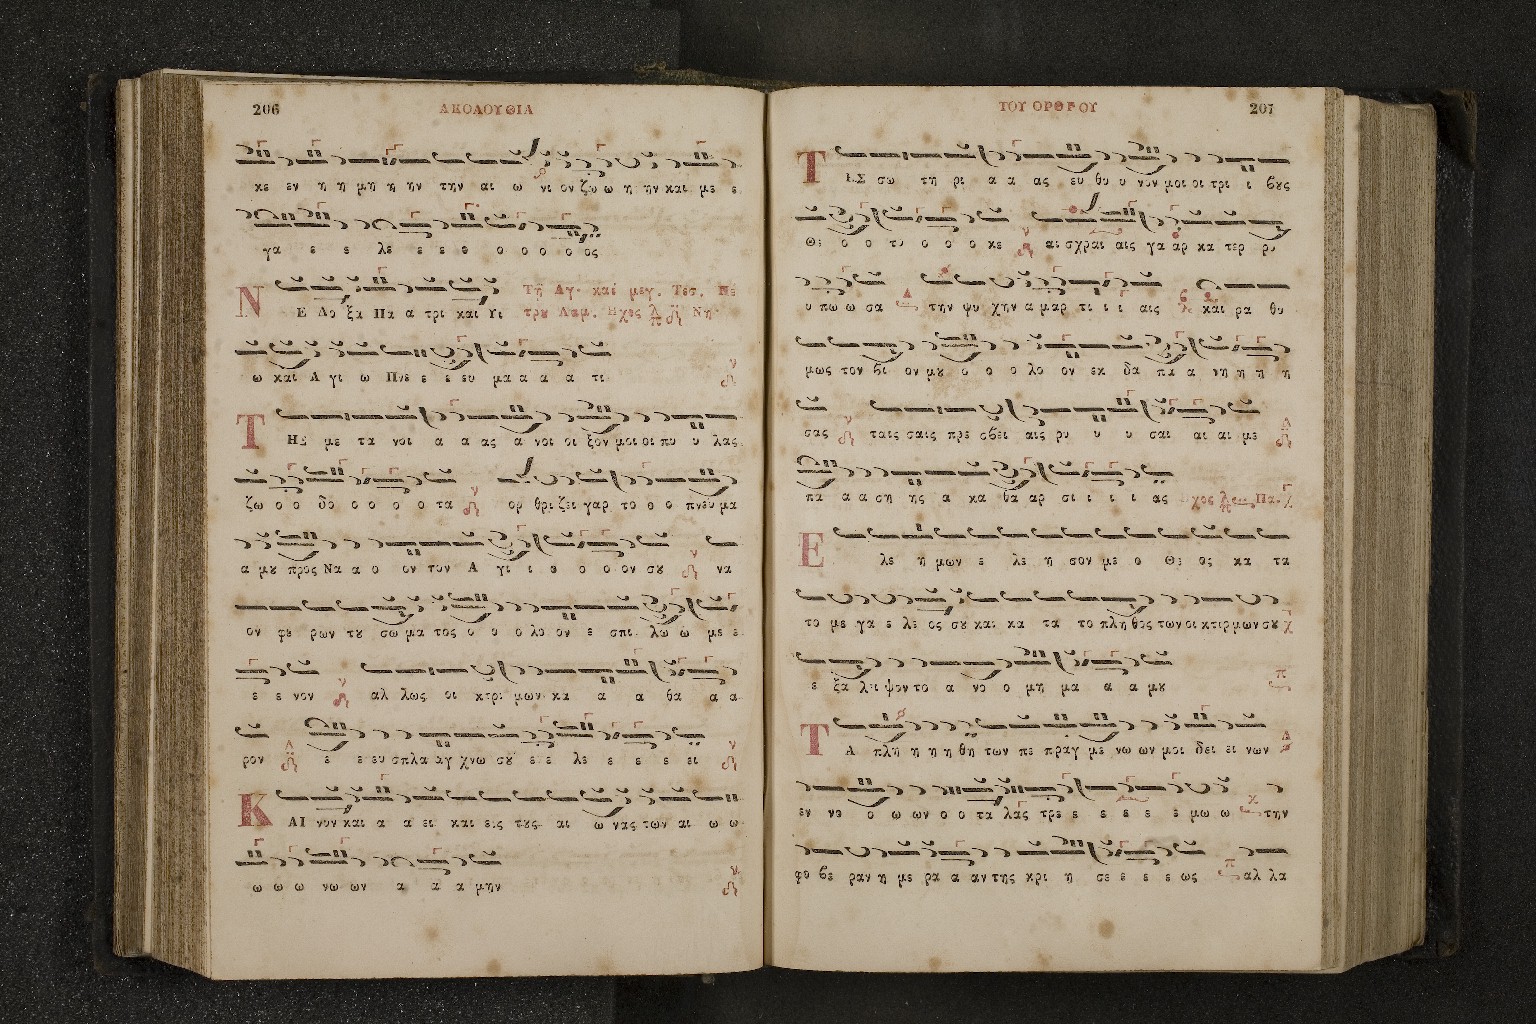 206
ΑΚΟΛΟΥΘΙΑ
κε εν η η μη η ην την αι ω νι ον ζω ω η ην και με ε
γα ε ε λε ε ε ε ο ο ο ο ο ος
Τῇ Αγ. και μεγ. Τεσ. Πε
ΝΕ Δο ξα Πα α τρι και Υι
τρου Λαμ. Ηχος Νη
ω και Α γι ω Πνε ε ε ευ μα α α α τι
ΤΗΣ με τα νοι α α ας α νοι οι ξον μοι οι πυ υ λας
ζω ο ο δο ο ο ο ο τα ορ θρι ζει γαρ το ο ο πνευ μα
α μου προς Να α ο ον τον Α γι ι ο ο ο ον σου να
ον φε ρων του σω μα τος ο υ ο λο ον ε σπι λω ω με ε
ε ε νον αλ λως οι κτιρ μων κα α α θα α α
ρον ε ε ευ σπλα αγ χνω σου ε ε λε ε ε ε ε ει
ΚΑΙ νυν και α α ει και εις τους αι ω νας των αι ω ω
ω ω ω νω ων α α α μην
ΤΟΥ ΟΡΘΡΟΥ
207
ΤΗΣ σω τη ρι α α ας ευ θυ υ νον μοι οι τρι ι βους
Θε ο ο το ο ο ο κε αι σχραι αις γα αρ κα τερ ρυ
υ πω ω σα την ψυ χην α μαρ τι ι ι αις και ρα θυ
μως τον βι ον μου ο ο ο λο ον εκ δα πα α νη η η η
σας ταις σαις πρε σβει αις ρυ υ υ σαι αι αι με
πα α α ση ης α κα θα αρ σι ι ι ι ας χος Πα.
Ε λε η μων ε λε η σον με ο Θε ος κα τα
το με γα ε λε ος σου και κα τα το πλη θος των οι κτιρ μων σου
ε ξα λει ψον το α νο ο μη μα α α μου
ΤΑ πλη η η η θη των πε πραγ με νω ων μοι δει ει νων
εν νο ο ω ων ο ο τα λας τρε ε ε ε ε ε μω ω την
φο βε ραν η με ρα α αν της κρι η σε ε ε ε ως αλ λα